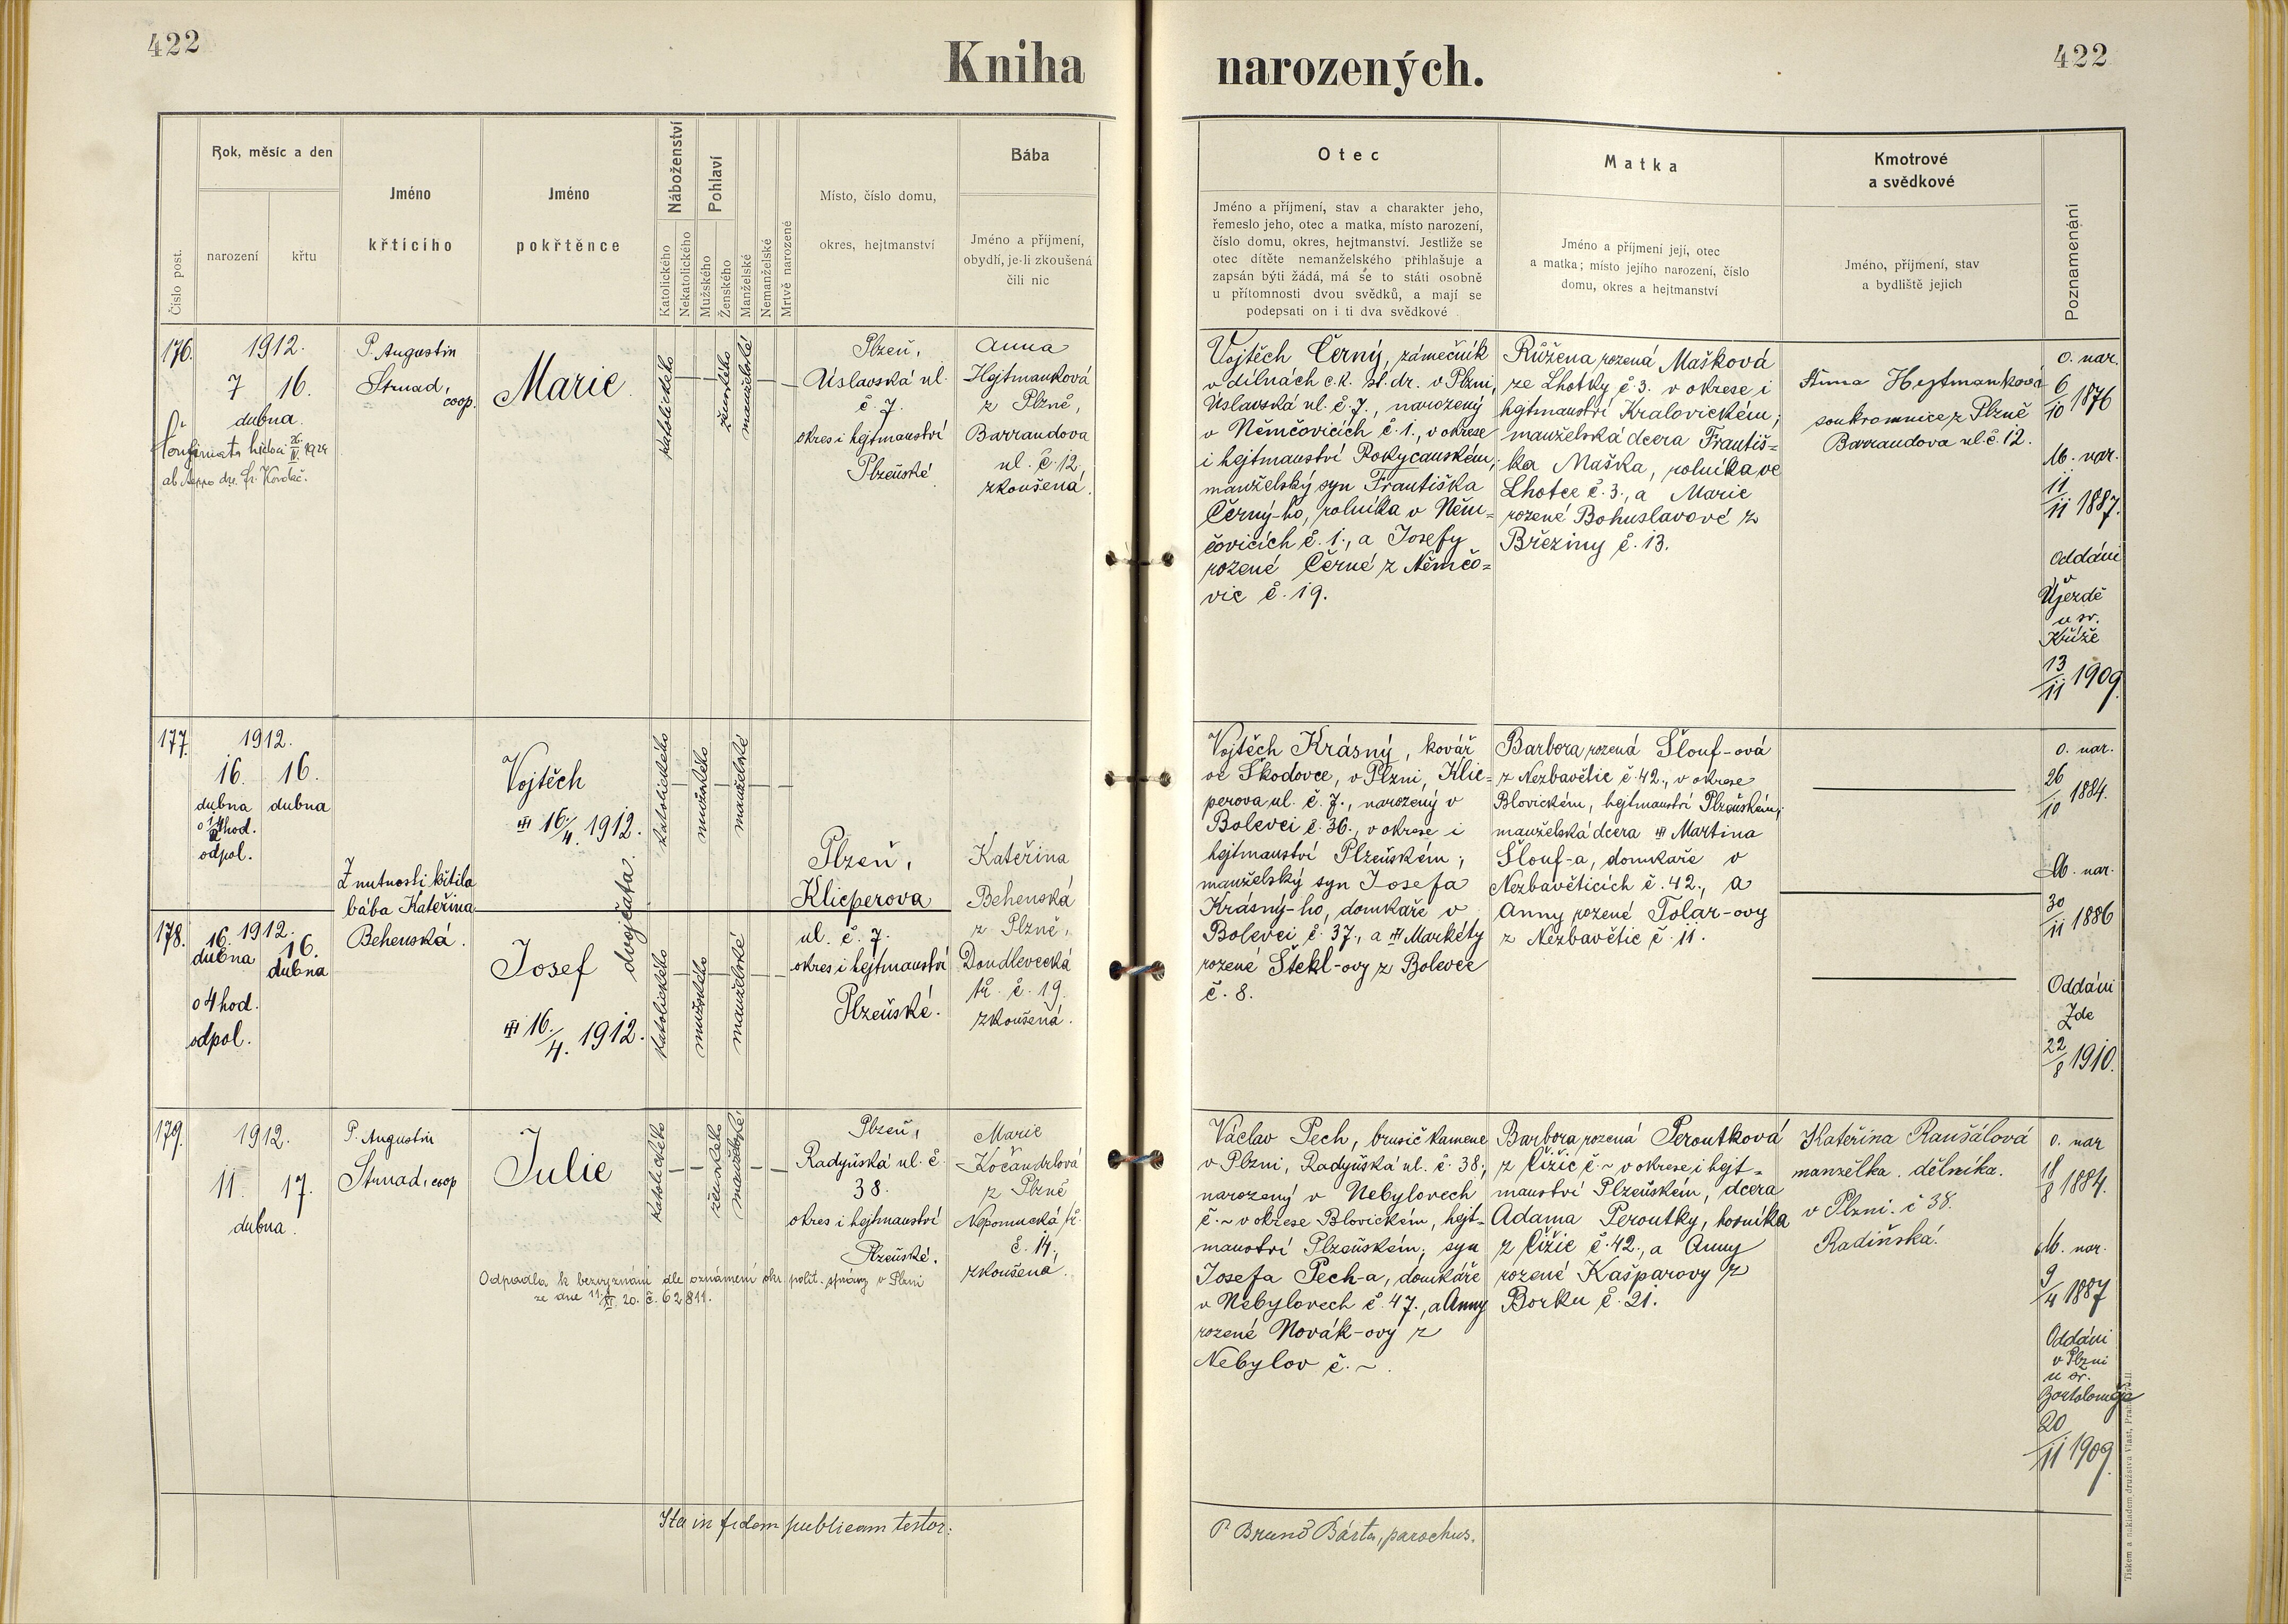 422
Kniha narozených.
422
Číslo post.
Rok, měsíc a den
narození
křtu
Jméno
křtícího
Jméno
pokřtěnce
Náboženství
Katolického
Nekatolického
Pohlaví
Mužského
Ženského
Manželské
Nemanželské
Mrtvě narozené
Místo, číslo domu,
okres, hejtmanství
Bába
Jméno a příjmení,
obydlí, je-li zkoušená
čili nic
Otec
Jméno a příjmení, stav a charakter jeho,
řemeslo jeho, otec a matka, místo narození,
číslo domu, okres, hejtmanství. Jestliže se
otec dítěte nemanželského přihlašuje a
zapsán býti žádá, má se to státi osobně
u přítomnosti dvou svědků, a mají se
podepsati on i ti dva svědkové
Matka
Jméno a příjmení její, otec
a matka; místo jejího narození, číslo
domu, okres a hejtmanství
Kmotrové
a svědkové
Jméno, příjmení, stav
a bydliště jejich
Poznamenání
176.
1912.
7 16.
dubna.
P. Augustin
Strnad,
coop.
Marie
katolického
ženského
manželské
Plzeň,
Úslavská ul.
č. 7.
okres i hejtmanství
Plzeňské
Anna
Hejtmanková
z Plzně,
Barrandova
ul. č. 12,
zkoušená.
Vojtěch Černý, zámečník
v dílnách c.k. st. dr. v Plzni,
Úslavská ul. č. 7., narozený
v Němčovicích č. 1., v okrese
i hejtmanství Rokycanském;
manželský syn Františka
Černý-ho, rolníka v Něm=
čovicích č. 1., a Josefy
rozené Černé z Němčo=
vic č. 19.
Růžena rozená Mašková
ze Lhotky č. 3. v okrese i
hejtmanství Kralovickém;
manželská dcera Františ=
ka Maška, rolníka ve
Lhotce č. 3., a Marie
rozené Bohuslavové z
Březiny č. 13.
Anna Hejtmanková
soukromnice z Plzně
Barrandova ul. č. 12.
o. nar.
6/10 1876
M. nar.
11/11 1887.
Oddáni
v
Újezdě
u sv.
Kříže
13/11 1909
177.
1912.
16. 16.
dubna dubna
hod.
odpol.
Z nutnosti křtila
bába Kateřina
Behenská.
Vojtěch
16./4. 1912.
dvojčata.
katolického
mužského
manželské
Plzeň,
Klicperova
ul. č. 7.
okres i hejtmanství
Plzeňské.
Kateřina
Behenská
z Plzně,
Doudlevecká
tř. č. 19.
zkoušená.
Vojtěch Krásný, kovář
ve Škodovce, v Plzni, Klic=
perova ul. č. 7., narozený v
Bolevci č. 36., v okrese i
hejtmanství Plzeňském;
manželský syn Josefa
Krásný-ho, domkaře v
Bolevci č. 37., a Markéty
rozené Štekl-ovy z Bolevce
č. 8.
Barbora rozená Šlouf-ová
z Nezbavětic č. 42., v okrese
Blovickém, hejtmanství Plzeňském;
manželská dcera Martina
Šlouf-a, domkaře v
Nezbavěticích č. 42., a
Anny rozené Tolar-ovy
z Nezbavětic č. 11.
o. nar.
26/10 1884.
M. nar.
30/11 1886
Oddáni
Zde
22/8 1910.
178.
1912.
16. 16.
dubna dubna
o 4 hod.
odpol.
Josef
16./4. 1912.
katolického
mužského
manželské
179.
1912.
11. 17.
dubna.
P. Augustin
Strnad, coop
Julie
katolického
ženského
manželské
Plzeň,
Radyňská ul. č.
38.
okres i hejtmanství
Plzeňské.
Marie
Kočandrlová
z Plzně
Nepomucká tř.
č. 14.,
zkoušená.
Odpadla k bezvyznání dle oznámení okr. polit. správy v Plzni
ze dne 11./XI. 20. č. 62811.
Václav Pech, brusič kamene
v Plzni, Radyňská ul. č. 38.,
narozený v Nebylovech
č. ~ v okrese Blovickém, hejt=
manství Plzeňském; syn
Josefa Pech-a, domkáře
v Nebylovech č. 47., a Anny
rozené Novák-ový z
Nebylov č. ~.
Barbora rozená Peroutková
z Čižic č. ~ v okrese i hejt=
manství Plzeňském, dcera
Adama Peroutky, horníka
z Čižic č. 42., a Anny
rozené Kašparovy z
Borku č. 21.
Kateřina Raušálová
manželka dělníka.
v Plzni. č 38.
Radiňská.
o. nar
18/8 1884.
M. nar.
9/4 1887
Oddáni
v Plzni
u sv.
Bartoloměje
20/11 1909
Ita in fidem publicam testor:
P. Bruno Bárta, parochus.